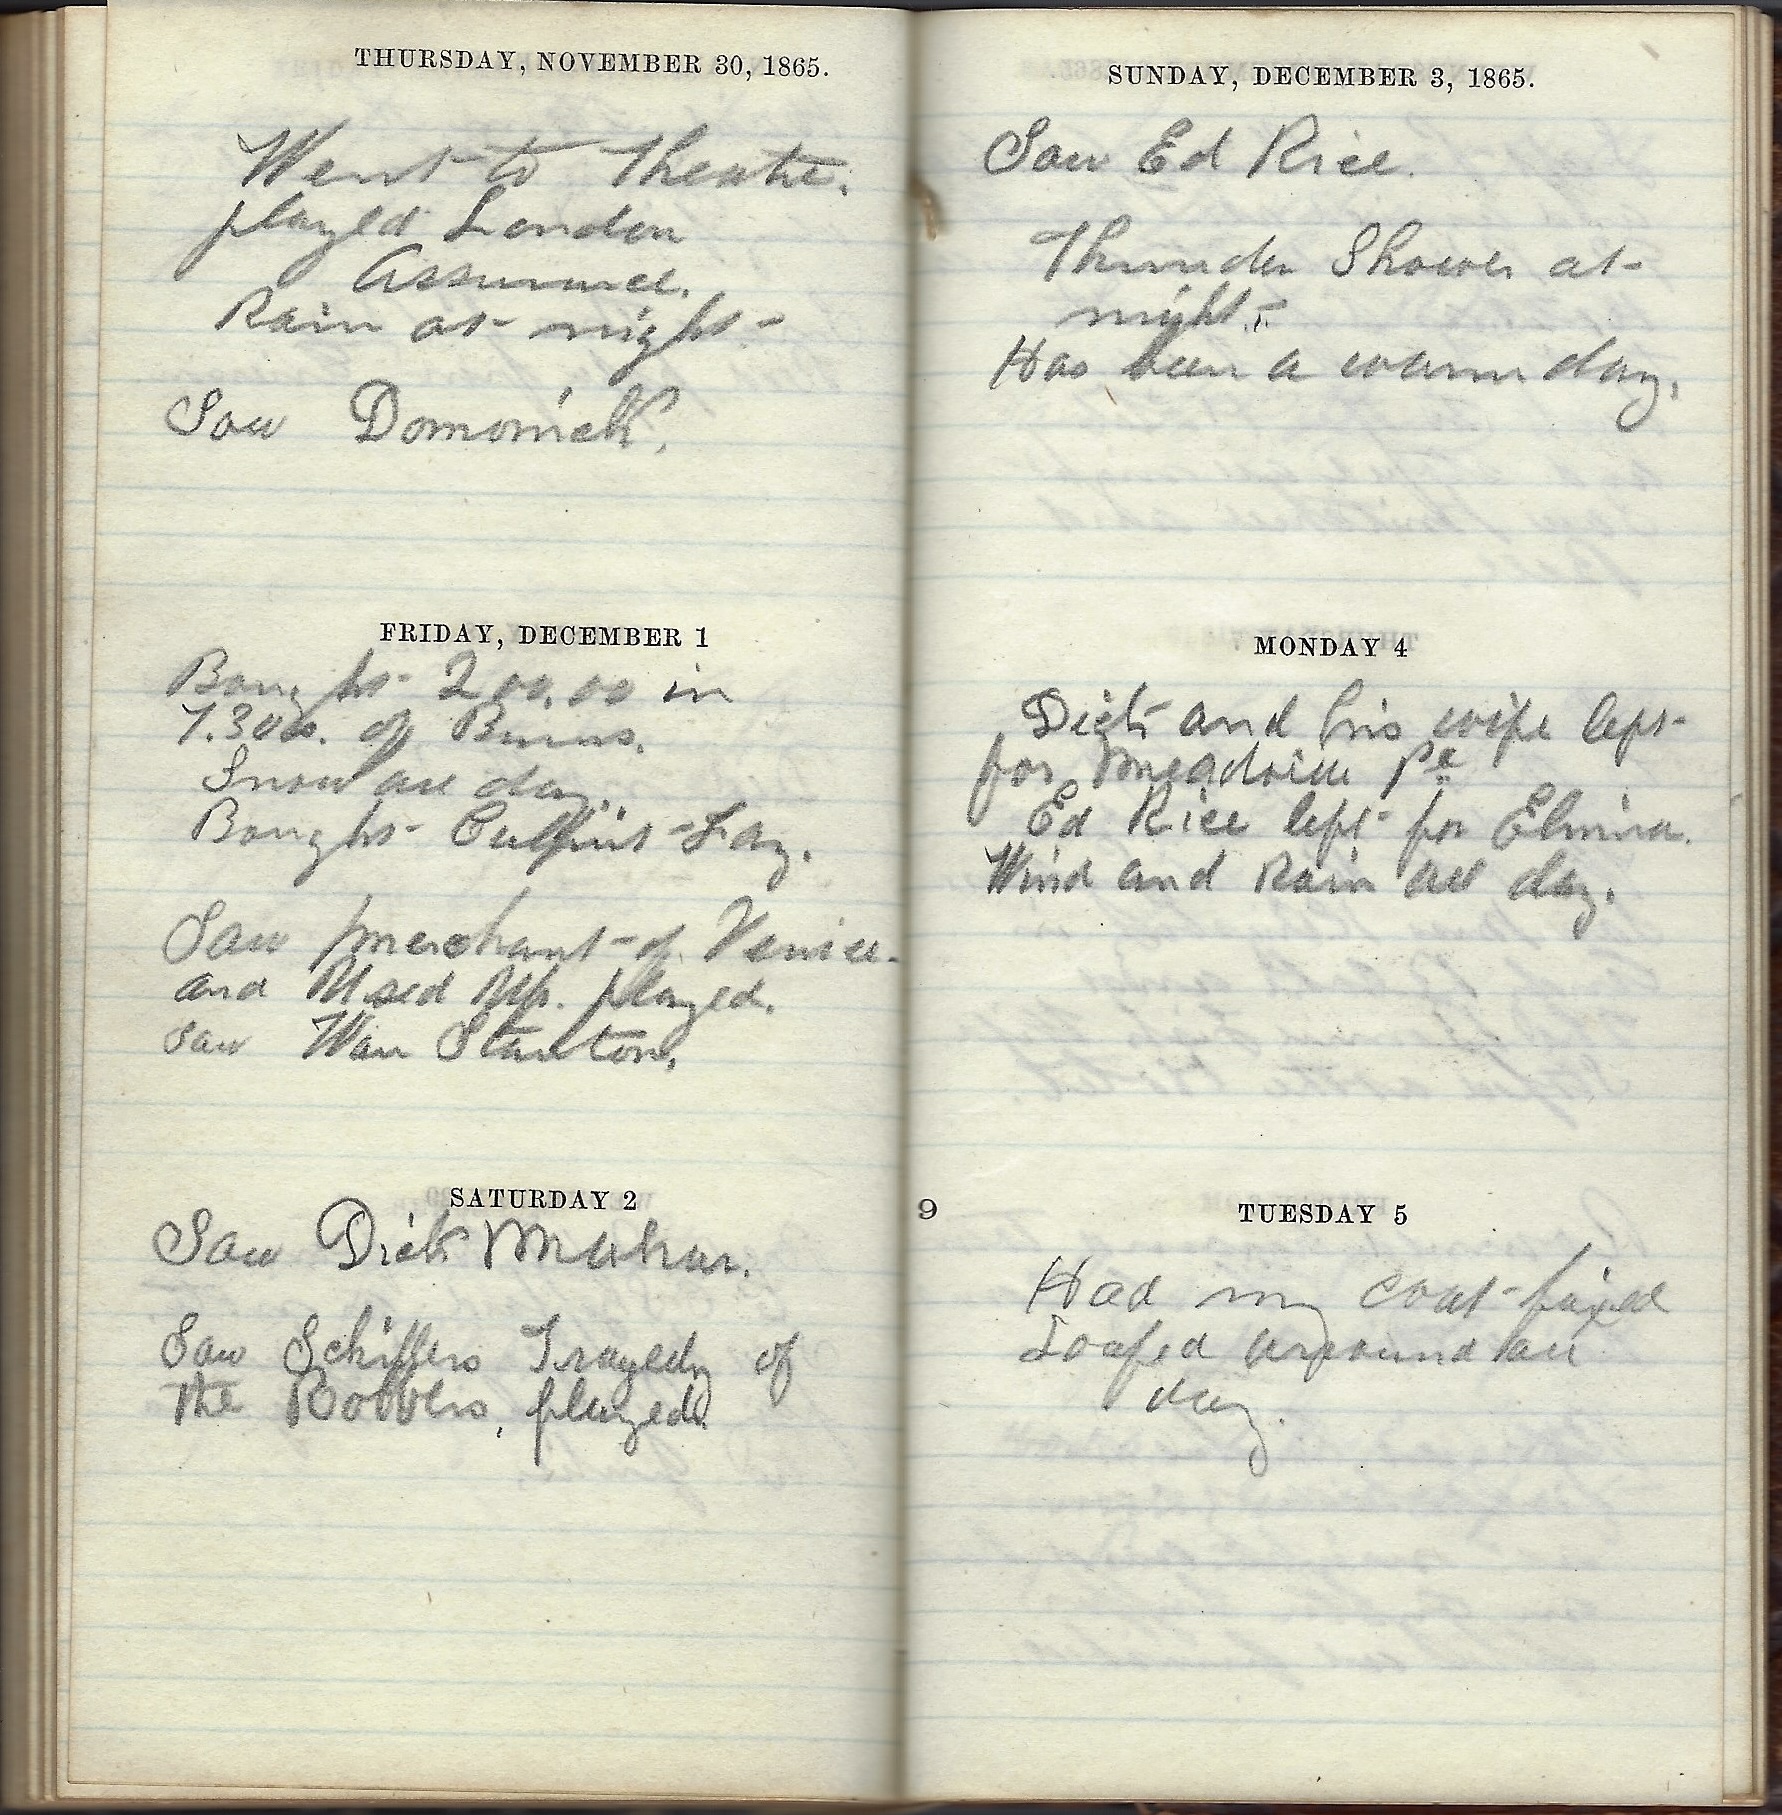 THURSDAY, NOVEMBER 30, 1865.
Went to Theatre.
played London
Assurance.
Rain at night
Saw Domonick.
FRIDAY, DECEMBER 1
Bought 200.00 in
7.30s. of Burns.
Snow all day.
Bought Culprit Fay.
Saw Merchant of Venice
and Used Up. played.
saw Wm Stanton.
SATURDAY 2
Saw Dick Mahar.
Saw Schillers Tragedy of
The Robbers, played
SUNDAY, DECEMBER 3, 1865.
Saw Ed Rice.
Thunder Shower at
night.
Has been a warm day.
MONDAY 4
Dick and his wife left
for Meadville Pa
Ed Rice left for Elmira.
Wind and Rain all day.
9
TUESDAY 5
Had my coat fixed
Loafed around all
day.